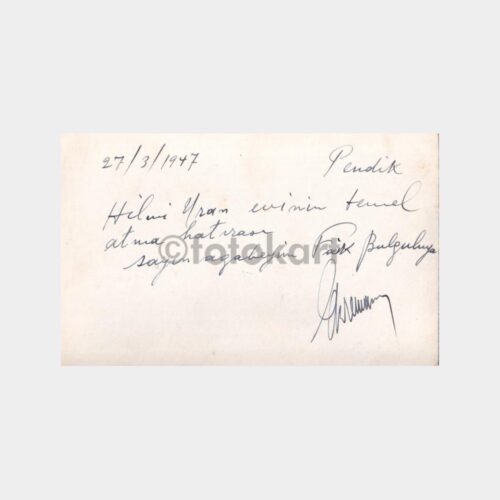 27/3/1947 Pendik
Hilmi Uran evinin temel
atma hatırası
©fotokart
sayın ağabeyim Faik Bulguluya